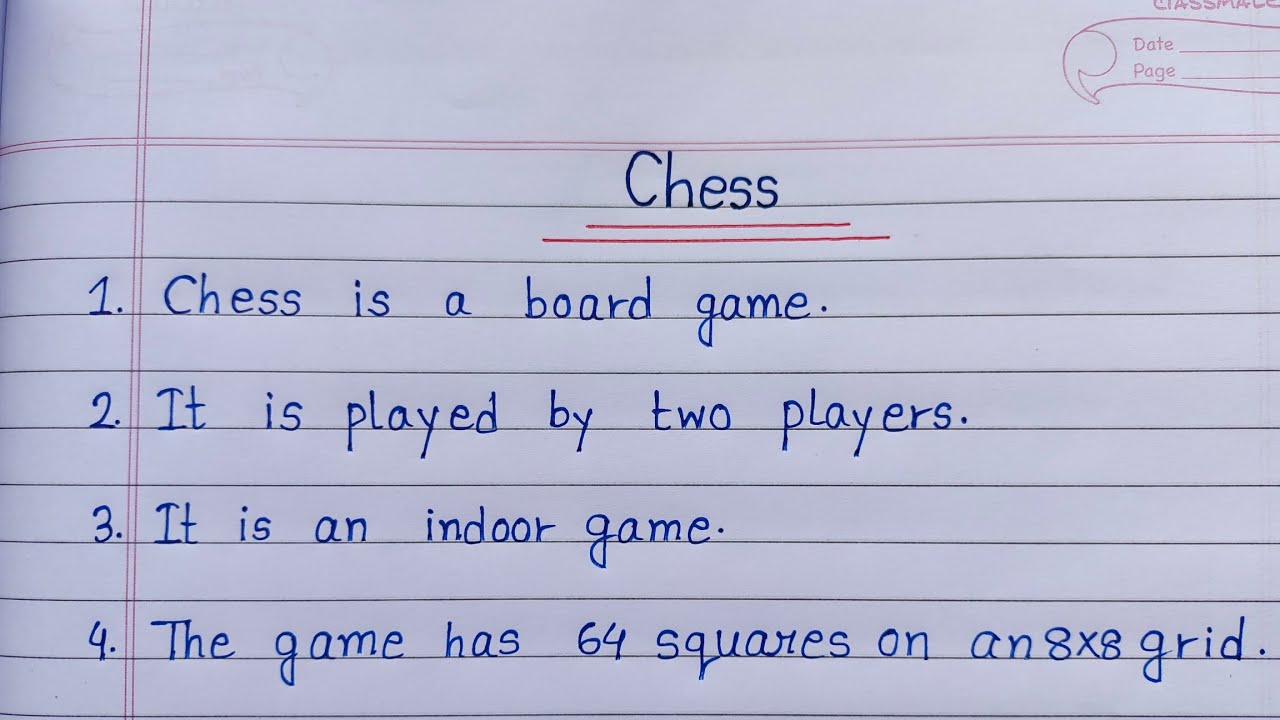 CLASSMATE
Date
Page
Chess
1. Chess is a board game.
2. It is played by two players.
3. It is an indoor game.
4. The game has 64 squares on an 8x8 grid.